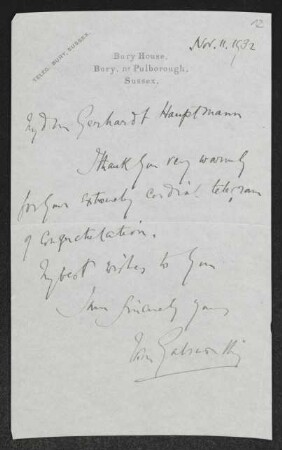 12
TELEG. BURY, SUSSEX.
Nov. 11. 1932
Bury House,
Bury, nr Pulborough,
Sussex.
My dear Gerhardt Hauptmann
Thank you very warmly
for your extremely cordial telegram
of congratulation.
My best wishes to you
I am sincerely yours
John Galsworthy